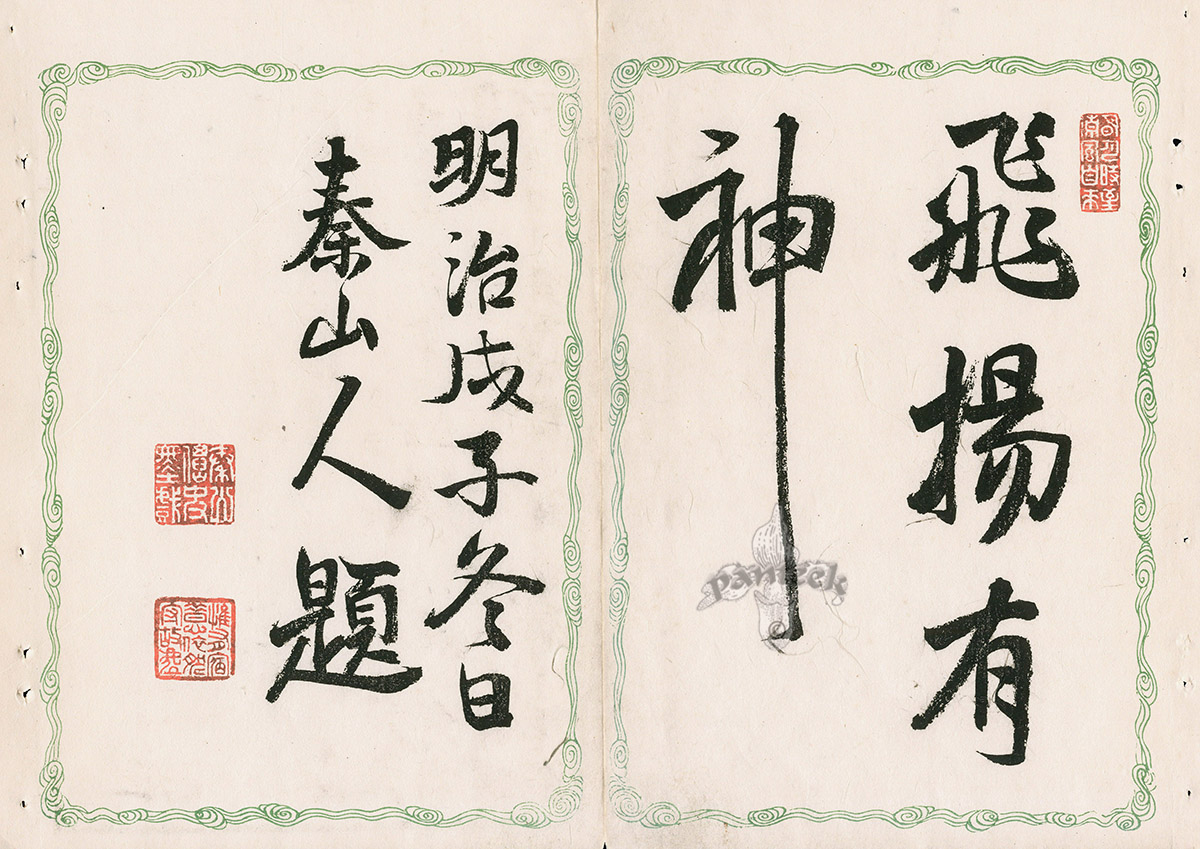 飛揚有
神
明治戊子冬日
秦山人題
pantek
©